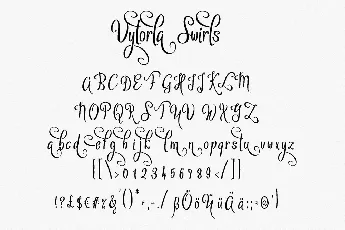 Vytorla Swirls
ABCDEFGHIJKLM
NOPQRSTUV WXYZ
abcdefghijklmnopqrstuvwxyz
[[\>0123456789</]]